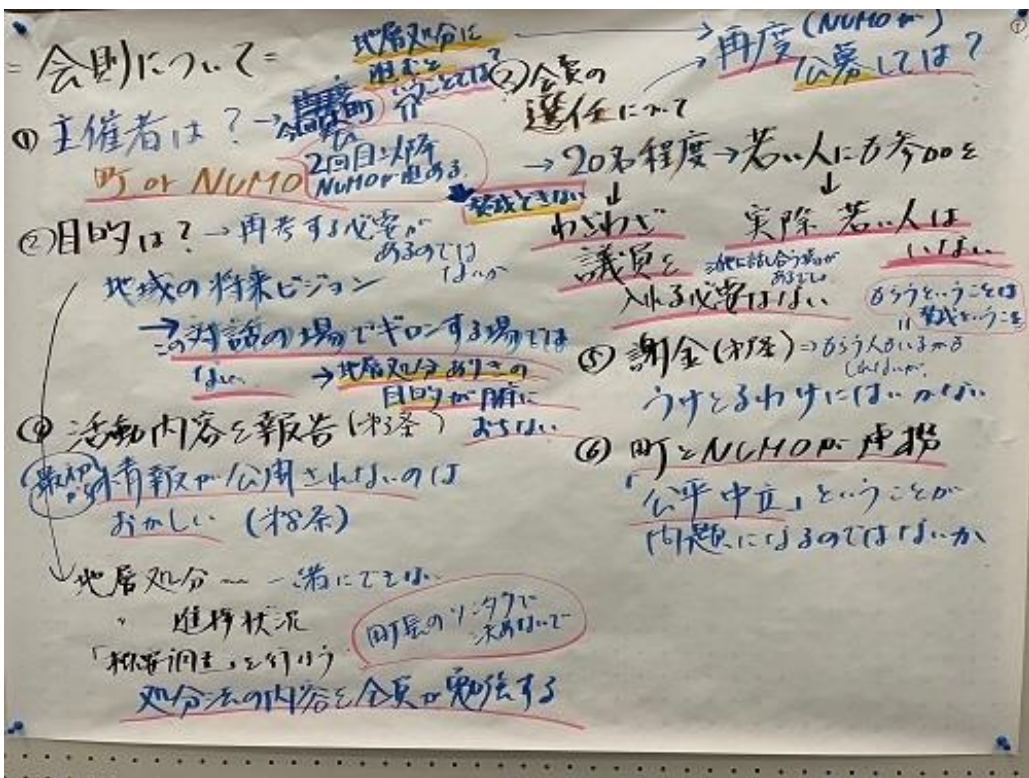 = 会則について =
① 主催者は？→
町 or NUMO
2回目以降
NUMOが
地層処分に
進むと
いうことでは？
② 目的は？→ 再考する必要が
あるのでは
ないか
地域の将来ビジョン
→ この対話の場でギロンする場では
ない
→ 地層処分ありきの
目的が腑に
おちない
④ 活動内容を報告(第3条)
最初から
情報が公開されないのは
おかしい (第8条)
地層処分 一緒にできない
〃 進捗状況
「概要調査」を行う
町長のソンタクで
決めないで
処分法の内容を全員が勉強する
③ 会員の
選任について
再度 (NUMOが)
公募しては？
→ 20名程度 → 若い人にも参加を
↓ ↓
賛成できない
わざわざ
議員を
入れる必要はない
実際 若い人は
いない
他に話し合う場が
あるでしょ
もらうということは
〃 賛成ということ
⑤ 謝金(第7条) ⇒ もらう人もいるかも
しれないが、
うけとるわけにはいかない
⑥ 町とNUMOが連携
「公平中立」ということが
問題になるのではないか